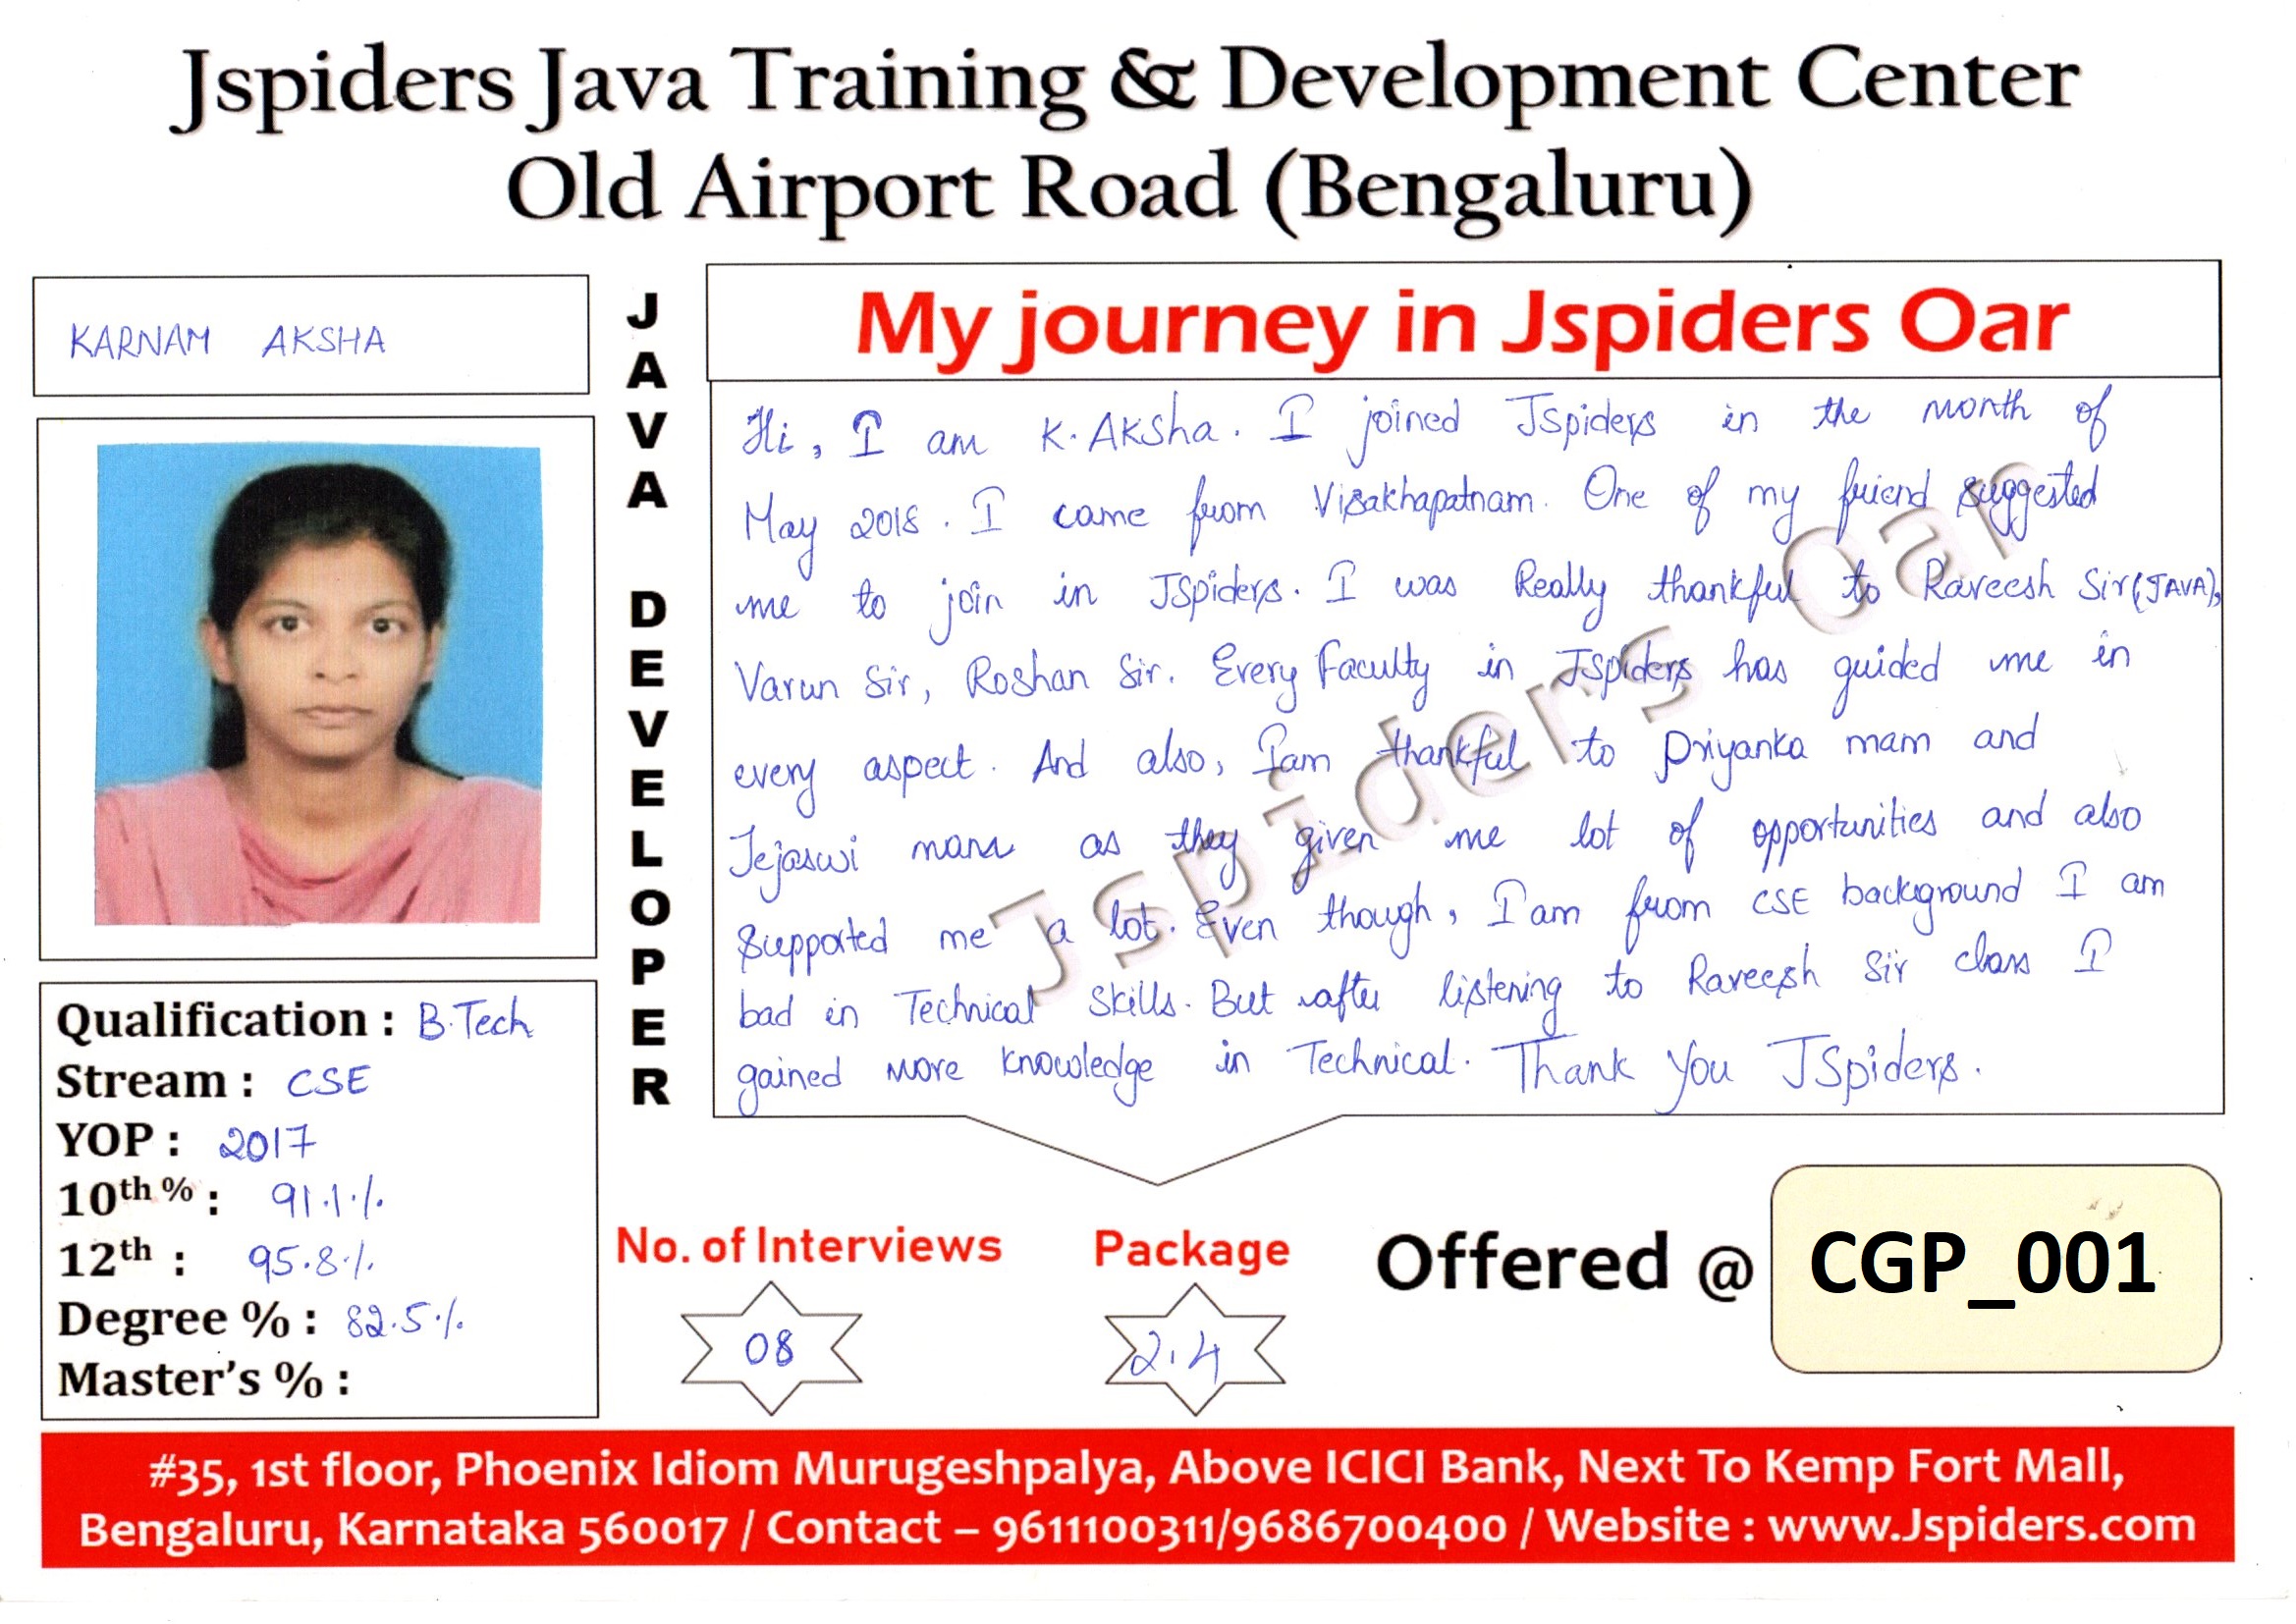 Jspiders Java Training & Development Center
Old Airport Road (Bengaluru)
KARNAM AKSHA
JAVA DEVELOPER
My journey in Jspiders Oar
Hi, I am K. Aksha. I joined JSpiders in the month of
May 2018. I came from Visakhapatnam. One of my friend suggested
me to join in JSpiders. I was Really thankful to Raveesh Sir(JAVA),
Varun Sir, Roshan Sir. Every Faculty in JSpiders has guided me in
every aspect. And also, Iam thankful to Priyanka mam and
Tejaswi mam as they given me lot of opportunities and also
supported me a lot. Even though, I am from CSE background I am
bad in Technical Skills. But after listening to Raveesh Sir class I
gained more knowledge in Technical. Thank You JSpiders.
Jspiders Oar
Qualification : B.Tech
Stream : CSE
YOP : 2017
10th % : 91.1%
12th : 95.8%
Degree % : 82.5%
Master's % :
No. of Interviews
08
Package
2.4
Offered @ CGP_001
#35, 1st floor, Phoenix Idiom Murugeshpalya, Above ICICI Bank, Next To Kemp Fort Mall,
Bengaluru, Karnataka 560017 / Contact – 9611100311/9686700400 / Website : www.Jspiders.com